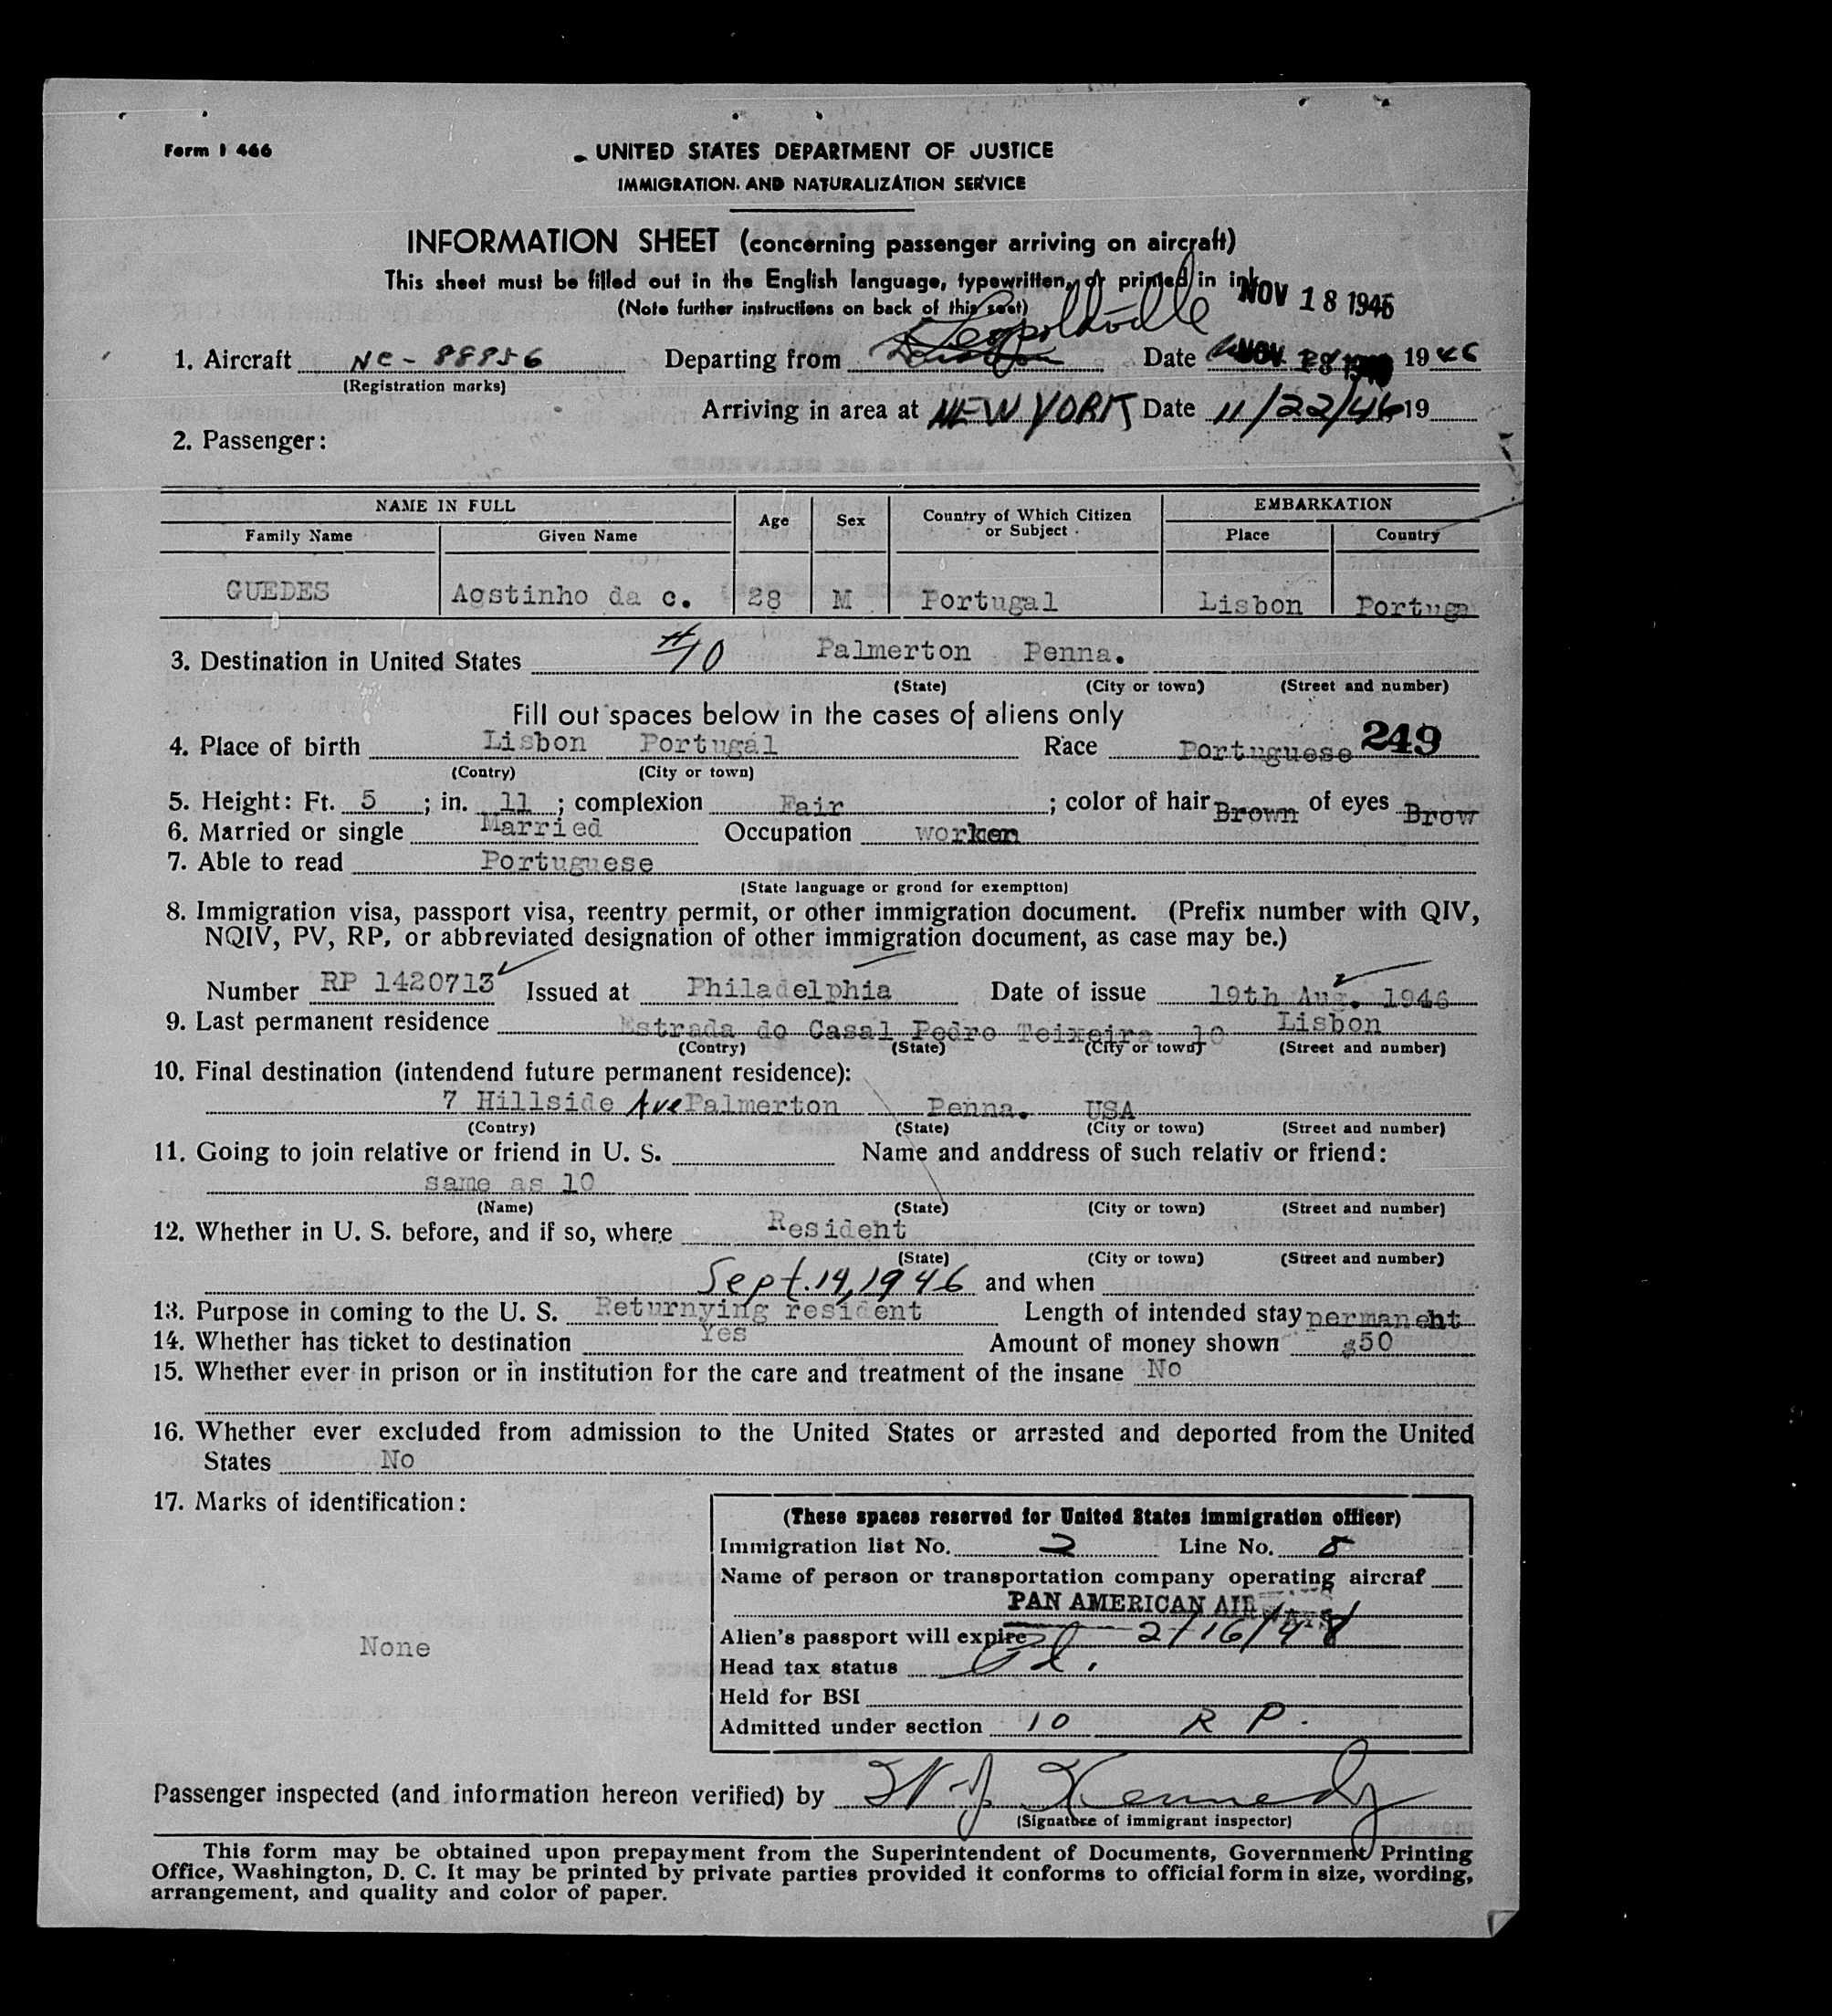 Form I 466
UNITED STATES DEPARTMENT OF JUSTICE
IMMIGRATION AND NATURALIZATION SERVICE
INFORMATION SHEET (concerning passenger arriving on aircraft)
This sheet must be filled out in the English language, typewritten, or printed in ink.
NOV 18 1946
(Note further instructions on back of this seet)
Leopoldville
1. Aircraft NC - 88856 Departing from Lisbon Date NOV 18 1946
(Registration marks)
Arriving in area at NEW YORK Date 11/22/46 19
2. Passenger:
NAME IN FULL Age Sex Country of Which Citizen or Subject EMBARKATION
Family Name Given Name Place Country
GUEDES Agstinho da c. 28 M Portugal Lisbon Portuga
3. Destination in United States #10 Palmerton Penna.
(State) (City or town) (Street and number)
Fill out spaces below in the cases of aliens only
4. Place of birth Lisbon Portugal Race Portuguese 249
(Contry) (City or town)
5. Height: Ft. 5 ; in. 11 ; complexion Fair ; color of hair Brown of eyes Brow
6. Married or single Married Occupation worker
7. Able to read Portuguese
(State language or grond for exemption)
8. Immigration visa, passport visa, reentry permit, or other immigration document. (Prefix number with QIV,
NQIV, PV, RP, or abbreviated designation of other immigration document, as case may be.)
Number RP 1420713 Issued at Philadelphia Date of issue 19th Aug. 1946
9. Last permanent residence Estrada do Casal Pedro Teixeira 10 Lisbon
(Contry) (State) (City or town) (Street and number)
10. Final destination (intendend future permanent residence):
7 Hillside Ave Palmerton Penna. USA
(Contry) (State) (City or town) (Street and number)
11. Going to join relative or friend in U. S. Name and anddress of such relativ or friend:
same as 10
(Name) (State) (City or town) (Street and number)
12. Whether in U. S. before, and if so, where Resident
(State) (City or town) (Street and number)
Sept. 14, 1946 and when
13. Purpose in coming to the U. S. Returnying resident Length of intended stay permanent
14. Whether has ticket to destination Yes Amount of money shown $50
15. Whether ever in prison or in institution for the care and treatment of the insane No
16. Whether ever excluded from admission to the United States or arrested and deported from the United
States No
17. Marks of identification:
None
(These spaces reserved for United States immigration officer)
Immigration list No. 2 Line No. 8
Name of person or transportation company operating aircraf
PAN AMERICAN AIRWAYS
Alien's passport will expire 2/16/48
Head tax status
Held for BSI
Admitted under section 10 R P.
Passenger inspected (and information hereon verified) by W J Kennedy
(Signature of immigrant inspector)
This form may be obtained upon prepayment from the Superintendent of Documents, Government Printing
Office, Washington, D. C. It may be printed by private parties provided it conforms to official form in size, wording,
arrangement, and quality and color of paper.